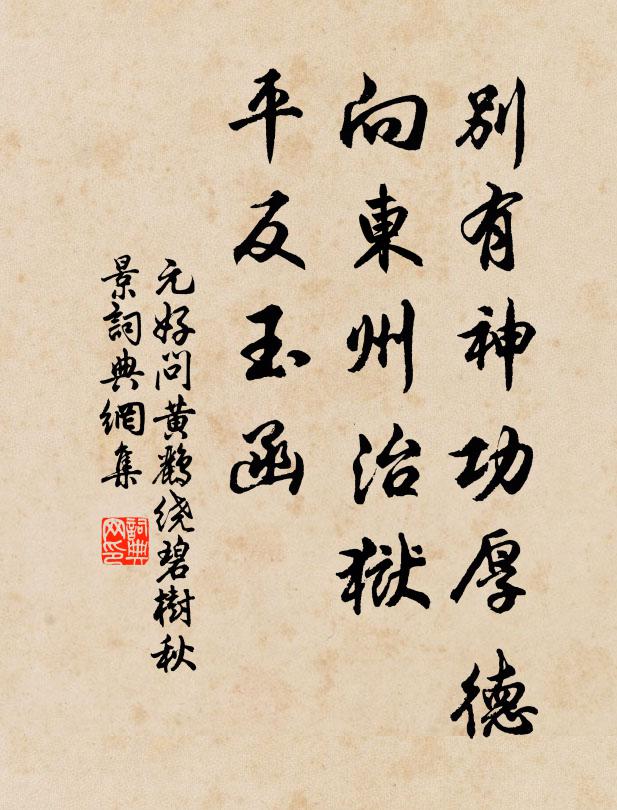 別有神功厚德
向東州治獄
平反玉函
元好问黄鶴绕碧樹秋
景詞典網集
詞典
网印